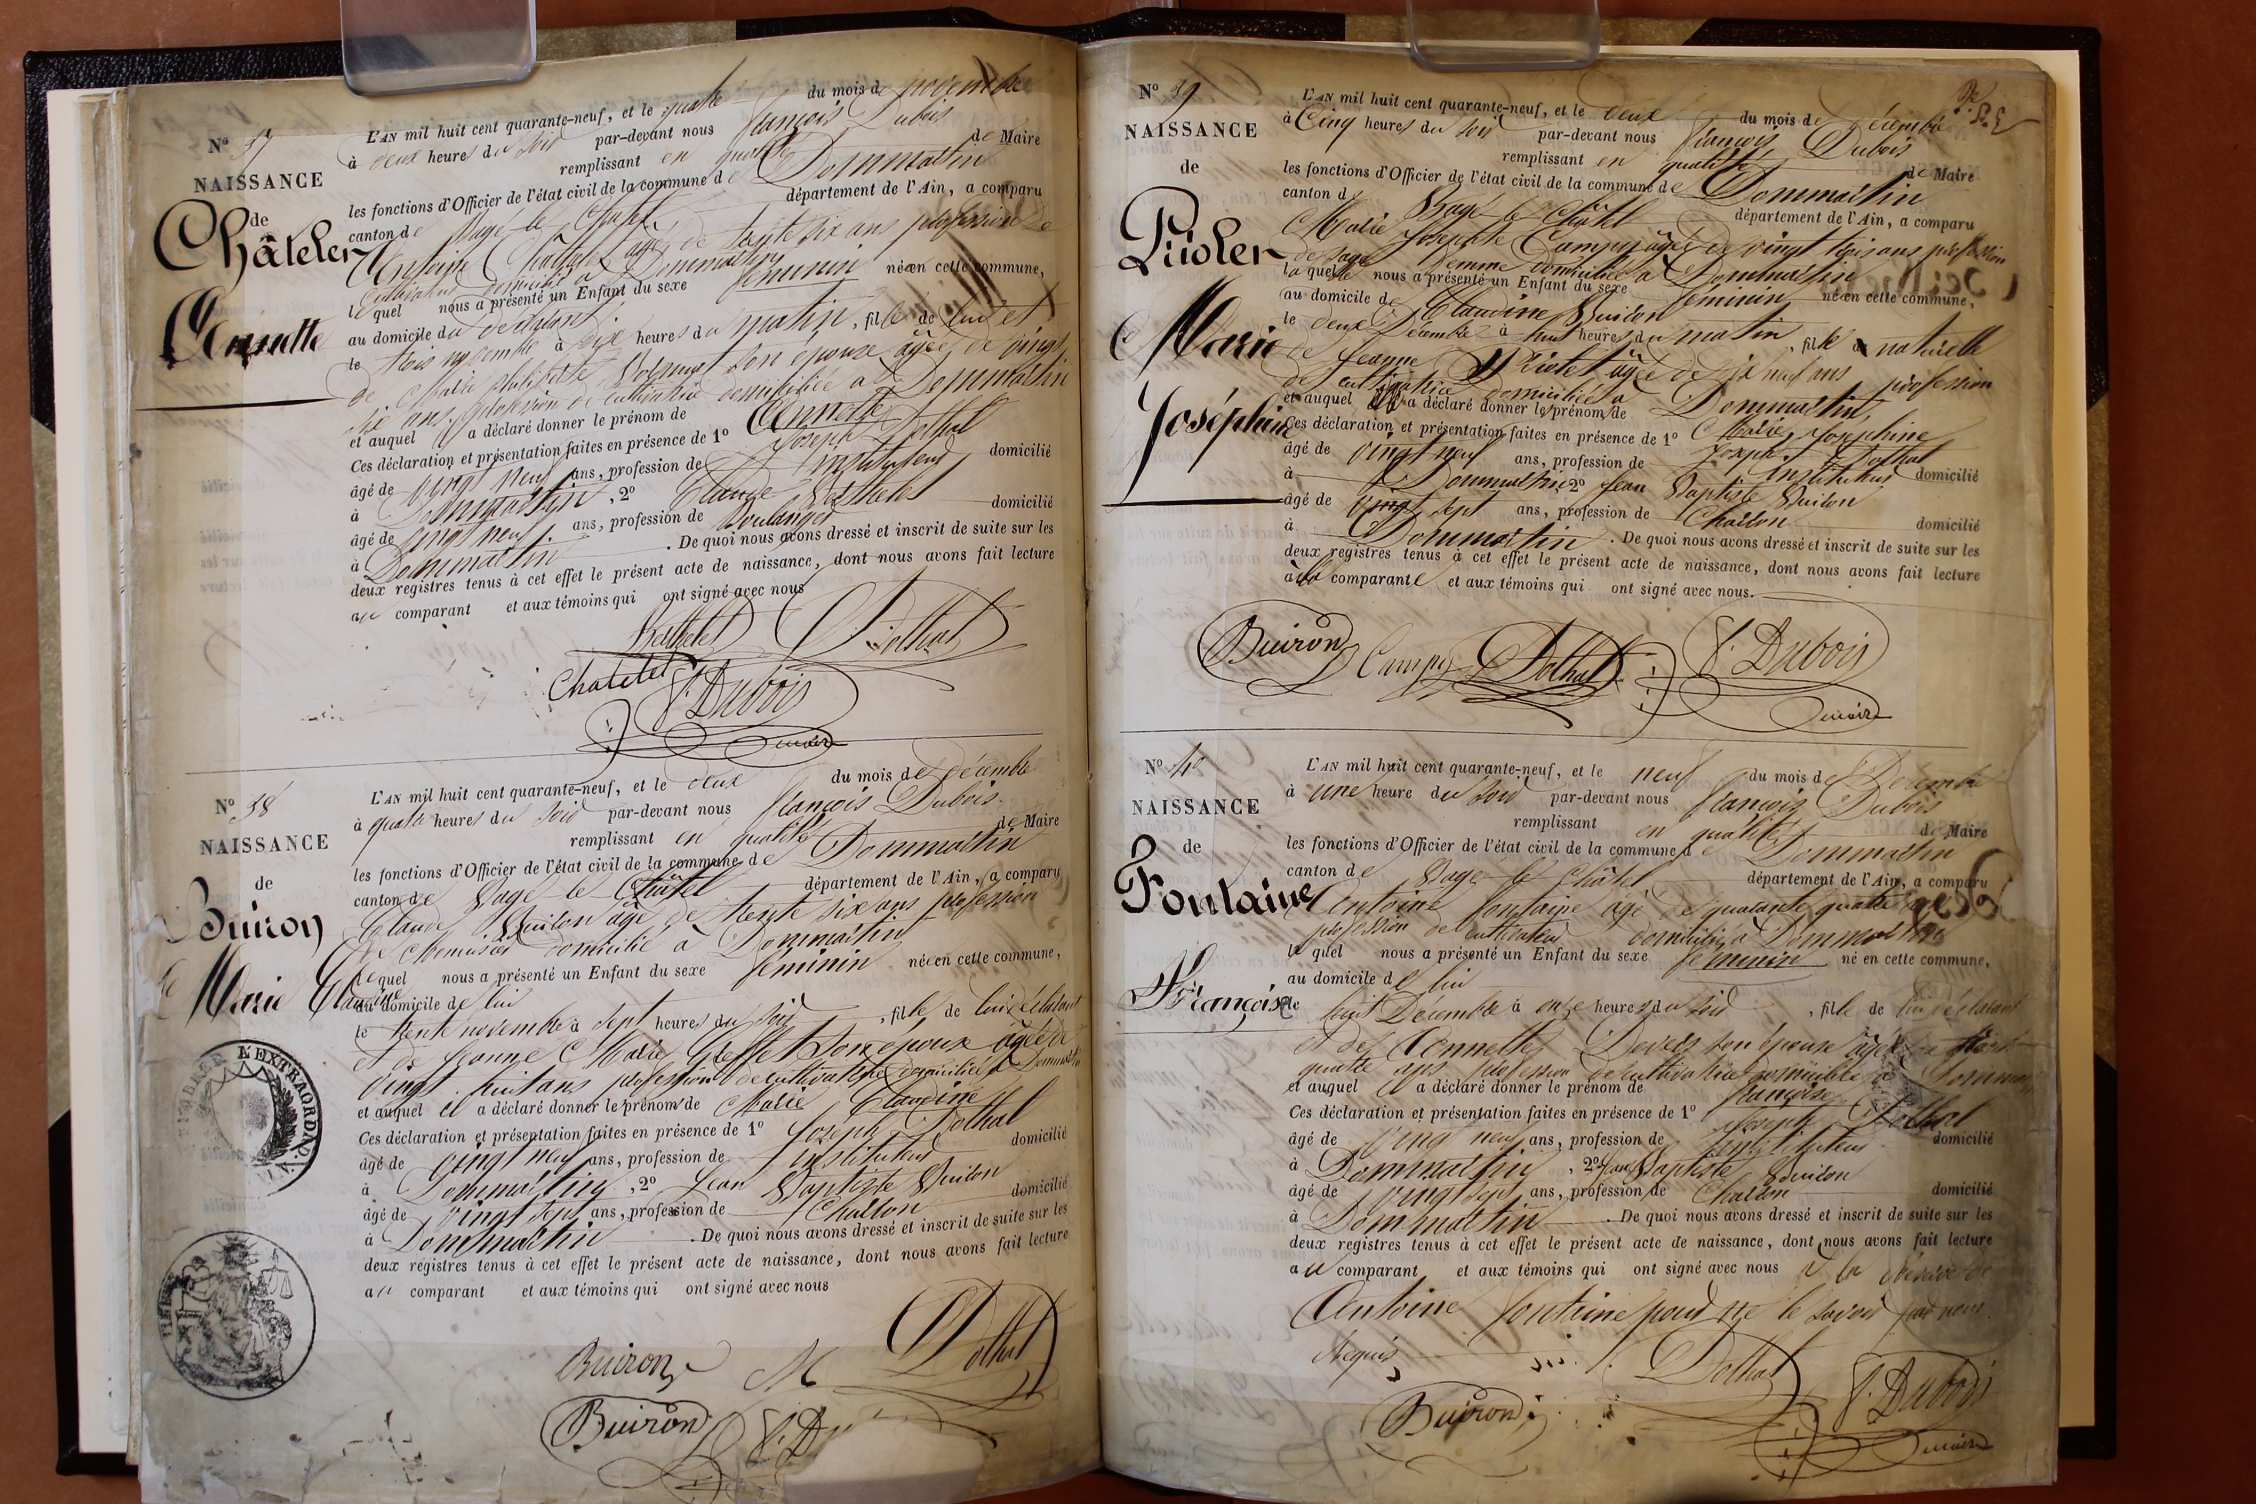 N° 37
NAISSANCE
de
Châtelet
Annette
L'AN mil huit cent quarante-neuf, et le quatre du mois de novembre
à deux heures du soir par-devant nous françois Dubois
remplissant en qualité de Maire
les fonctions d'Officier de l'état civil de la commune de Dommartin
canton de Bagé le Châtel département de l'Ain, a comparu
Antoine Châtelet âgé de trente six ans profession de
cultivateur domicilié à Dommartin
lequel nous a présenté un Enfant du sexe féminin née en cette commune,
au domicile du déclarant
le trois novembre à dix heures du matin, fille de lui et
de Marie son epouse âgée de vingt
six ans, profession de cultivatrice domiciliée à Dommartin
et auquel il a déclaré donner le prénom de Annette
Ces déclaration et présentation faites en présence de 1° Joseph Dothal
âgé de vingt neuf ans, profession de Instituteur domicilié
à Dommartin, 2° Claude Berthelet
âgé de vingt neuf ans, profession de Boulanger domicilié
à Dommartin. De quoi nous avons dressé et inscrit de suite sur les
deux registres tenus à cet effet le présent acte de naissance, dont nous avons fait lecture
au comparant et aux témoins qui ont signé avec nous
Berthelet Dothal
Chatelet f. Dubois
maire
N° 38
NAISSANCE
de
Buiron
Marie Claudine
L'AN mil huit cent quarante-neuf, et le deux du mois de décembre
à quatre heures du soir par-devant nous françois Dubois
remplissant en qualité de Maire
les fonctions d'Officier de l'état civil de la commune de Dommartin
canton de Bagé le Châtel département de l'Ain, a comparu
Claude Buiron âgé de trente six ans profession
de Menuisier domicilié à Dommartin
lequel nous a présenté un Enfant du sexe féminin née en cette commune,
au domicile de lui
le trente novembre à sept heures du soir, fille de lui déclarant
et de Jeanne Marie Greffet son épouse âgée de
vingt huit ans profession de cultivatrice domiciliée à Dommartin
et auquel il a déclaré donner le prénom de Marie Claudine
Ces déclaration et présentation faites en présence de 1° Joseph Dothal
âgé de vingt neuf ans, profession de instituteur domicilié
à Dommartin, 2° Jean Baptiste Buiron
âgé de vingt sept ans, profession de Charron domicilié
à Dommartin. De quoi nous avons dressé et inscrit de suite sur les
deux registres tenus à cet effet le présent acte de naissance, dont nous avons fait lecture
au comparant et aux témoins qui ont signé avec nous
Buiron M Dothal
Buiron f. D
TIMBRE L'EXTRAORDIN.
N° 39
NAISSANCE
de
Marie
Joséphine
L'AN mil huit cent quarante-neuf, et le deux du mois de décembre
à Cinq heures du soir par-devant nous françois Dubois
remplissant en qualité de Maire
les fonctions d'Officier de l'état civil de la commune de Dommartin
canton de Bagé le Châtel département de l'Ain, a comparu
Marie Josephte Campy âgée de vingt trois ans profession
de sage femme domiciliée à Dommartin
laquelle nous a présenté un Enfant du sexe féminin née en cette commune,
au domicile de Claudine Buiron
le deux Décembre à huit heures du matin, fille naturelle
de Jeanne âgée de dix neuf ans profession
de cultivatrice domiciliée à Dommartin
et auquel a déclaré donner le prénom de Marie Josephine
Ces déclaration et présentation faites en présence de 1° Joseph Dothal
âgé de vingt neuf ans, profession de Instituteur domicilié
à Dommartin 2° Jean Baptiste Buiron
âgé de vingt sept ans, profession de Charron domicilié
à Dommartin. De quoi nous avons dressé et inscrit de suite sur les
deux registres tenus à cet effet le présent acte de naissance, dont nous avons fait lecture
à la comparante et aux témoins qui ont signé avec nous.
Buiron Campy Dothal f. Dubois
maire
N° 40
NAISSANCE
de
Fontaine
Françoise
L'AN mil huit cent quarante-neuf, et le neuf du mois de Décembre
à une heure du soir par-devant nous françois Dubois
remplissant en qualité de Maire
les fonctions d'Officier de l'état civil de la commune de Dommartin
canton de Bagé le Châtel département de l'Ain, a comparu
Antoine fontaine âgé de quarante quatre ans
profession de cultivateur domicilié à Dommartin
lequel nous a présenté un Enfant du sexe féminin né en cette commune,
au domicile de lui
le huit Décembre à onze heures du soir, fille de lui déclarant
et de Annette son épouse âgée de
quatre ans profession de cultivatrice domiciliée à Dommartin
et auquel il a déclaré donner le prénom de françoise
Ces déclaration et présentation faites en présence de 1° Joseph Dothal
âgé de vingt neuf ans, profession de Instituteur domicilié
à Dommartin, 2° Jean Baptiste Buiron
âgé de vingt sept ans, profession de Charron domicilié
à Dommartin. De quoi nous avons dressé et inscrit de suite sur les
deux registres tenus à cet effet le présent acte de naissance, dont nous avons fait lecture
au comparant et aux témoins qui ont signé avec nous à la réserve de
Antoine fontaine pour ne le savoir par nous
requis
Dothal
Buiron f. Dubois
maire